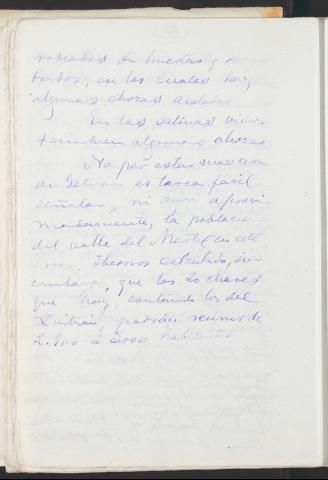 rodeadas de huertas y
brados, en las cuales hay
algunas chozas aisladas
En las salinas vimos
tambien algunas chozas
No por estar mas cerca
de Tetuán es tarea fácil
señalar, ni aun aproxi
madamente, la poblacion
del valle del Martil en este
trozo. Hemos calculado, sin
embargo, que los 20 chares
que hay, contando los del
podrán reunir de
2.800 á 3000 habitantes